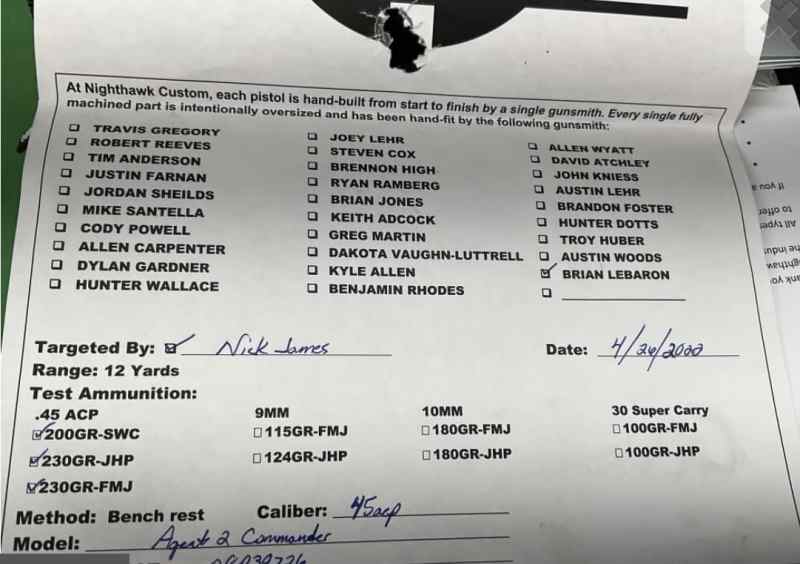 At Nighthawk Custom, each pistol is hand-built from start to finish by a single gunsmith. Every single fully
machined part is intentionally oversized and has been hand-fit by the following gunsmith:
TRAVIS GREGORY
ROBERT REEVES
TIM ANDERSON
JUSTIN FARNAN
JORDAN SHEILDS
MIKE SANTELLA
CODY POWELL
ALLEN CARPENTER
DYLAN GARDNER
HUNTER WALLACE
JOEY LEHR
STEVEN COX
BRENNON HIGH
RYAN RAMBERG
BRIAN JONES
KEITH ADCOCK
GREG MARTIN
DAKOTA VAUGHN-LUTTRELL
KYLE ALLEN
BENJAMIN RHODES
ALLEN WYATT
DAVID ATCHLEY
JOHN KNIESS
AUSTIN LEHR
BRANDON FOSTER
HUNTER DOTTS
TROY HUBER
AUSTIN WOODS
BRIAN LEBARON
Targeted By: Nick James
Date: 4/26/2022
Range: 12 Yards
Test Ammunition:
.45 ACP
200GR-SWC
230GR-JHP
230GR-FMJ
9MM
115GR-FMJ
124GR-JHP
10MM
180GR-FMJ
180GR-JHP
30 Super Carry
100GR-FMJ
100GR-JHP
Method: Bench rest
Caliber: 45acp
Model: Agent 2 Commander
If you
to offer
All types